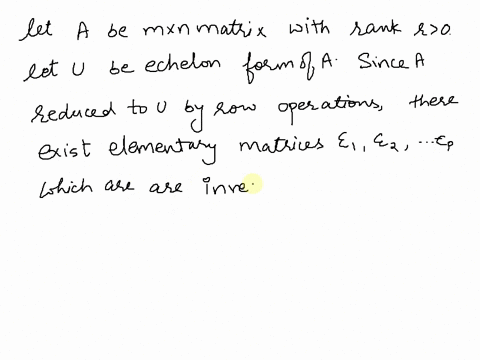 let A be m×n matrix with rank r>0.
let U be echelon form of A. Since A
reduced to U by row operations, there
exist elementary matrices ε1, ε2, ...εp
which are are inve